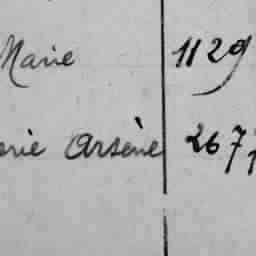 Marie 1129
erie Arsène 267